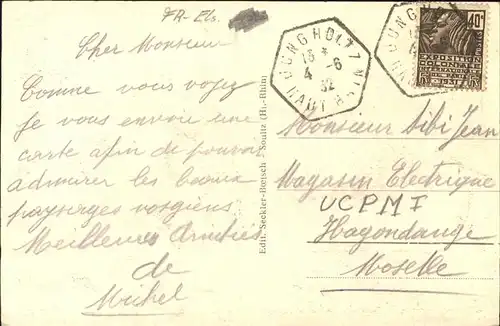 FR-Els.
Cher Monsieur
Comme vous voyez
je vous envoie une
carte afin de pouvoir
admirer les beaux
paysages vosgiens
Meilleures Amitiés
de
Michel
Edit. Seckler-Hottsch - Soultz (Ht.-Rhin)
JUNGHOLTZ
15 *
4 -6
32
HAUT-R
40c
POSTES
EXPOSITION
COLONIALE
INTERNATIONALE
PARIS 1931
Monsieur Sibi Jean
Magasin Electrique
UCPMI
Hagondange
Moselle